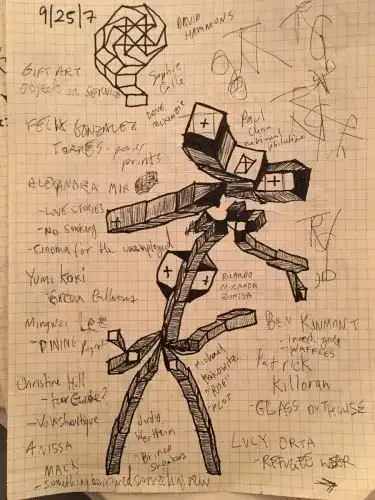 9/25/7
DAVID
HAMMONS
GIFT ART
OBJECT OR SERVICE
Sophie
Calle
DAVE
MCKENZIE
Paul
Chan
national
philistine
FELIX GONZALEZ
TORRES - poster
prints
ALEXANDRA MIR
- LOVE STORIES
- No Smoking
- Cinema for the unemployed
YUMI KORI
ROLANDO
MIRANDA
ZUNIGA
Mingwei Lee
DINING Project
Christine Hill
- tour Guide?
- Volksboutique
ANISSA
MACK
- Something borrowed something new
Judy
Werthein
- Brinco
Sneakers
Michael
Rakowitz
BEN KINMONT
- WAFFLES
Patrick
Killoran
- GLASS OUTHOUSE
LUCY ORTA
- REFUGEE WEAR